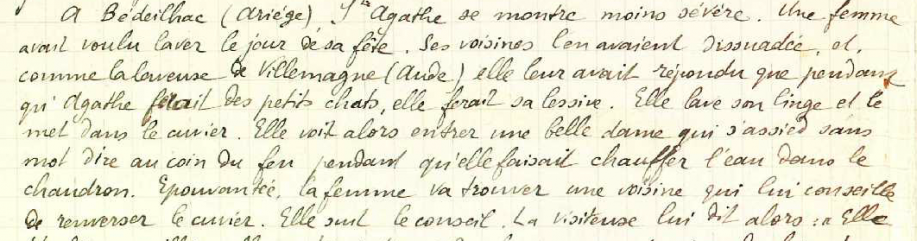 A Bédeilhac (Ariége) Ste Agathe se montre moins sévère. Une femme
avait voulu laver le jour de sa fête. Ses voisines l'en avaient dissuadée, et,
comme la laveuse de Villemagne (Aude) elle leur avait répondu que pendant
qu'Agathe ferait des petits chats, elle ferait sa lessive. Elle lave son linge et le
met dans le cuvier. Elle voit alors entrer une belle dame qui s'assied sans
mot dire au coin du feu pendant qu'elle faisait chauffer l'eau dans le
chaudron. Epouvantée, la femme va trouver une voisine qui lui conseille
de renverser le cuvier. Elle suit le conseil. La visiteuse lui dit alors : « Elle